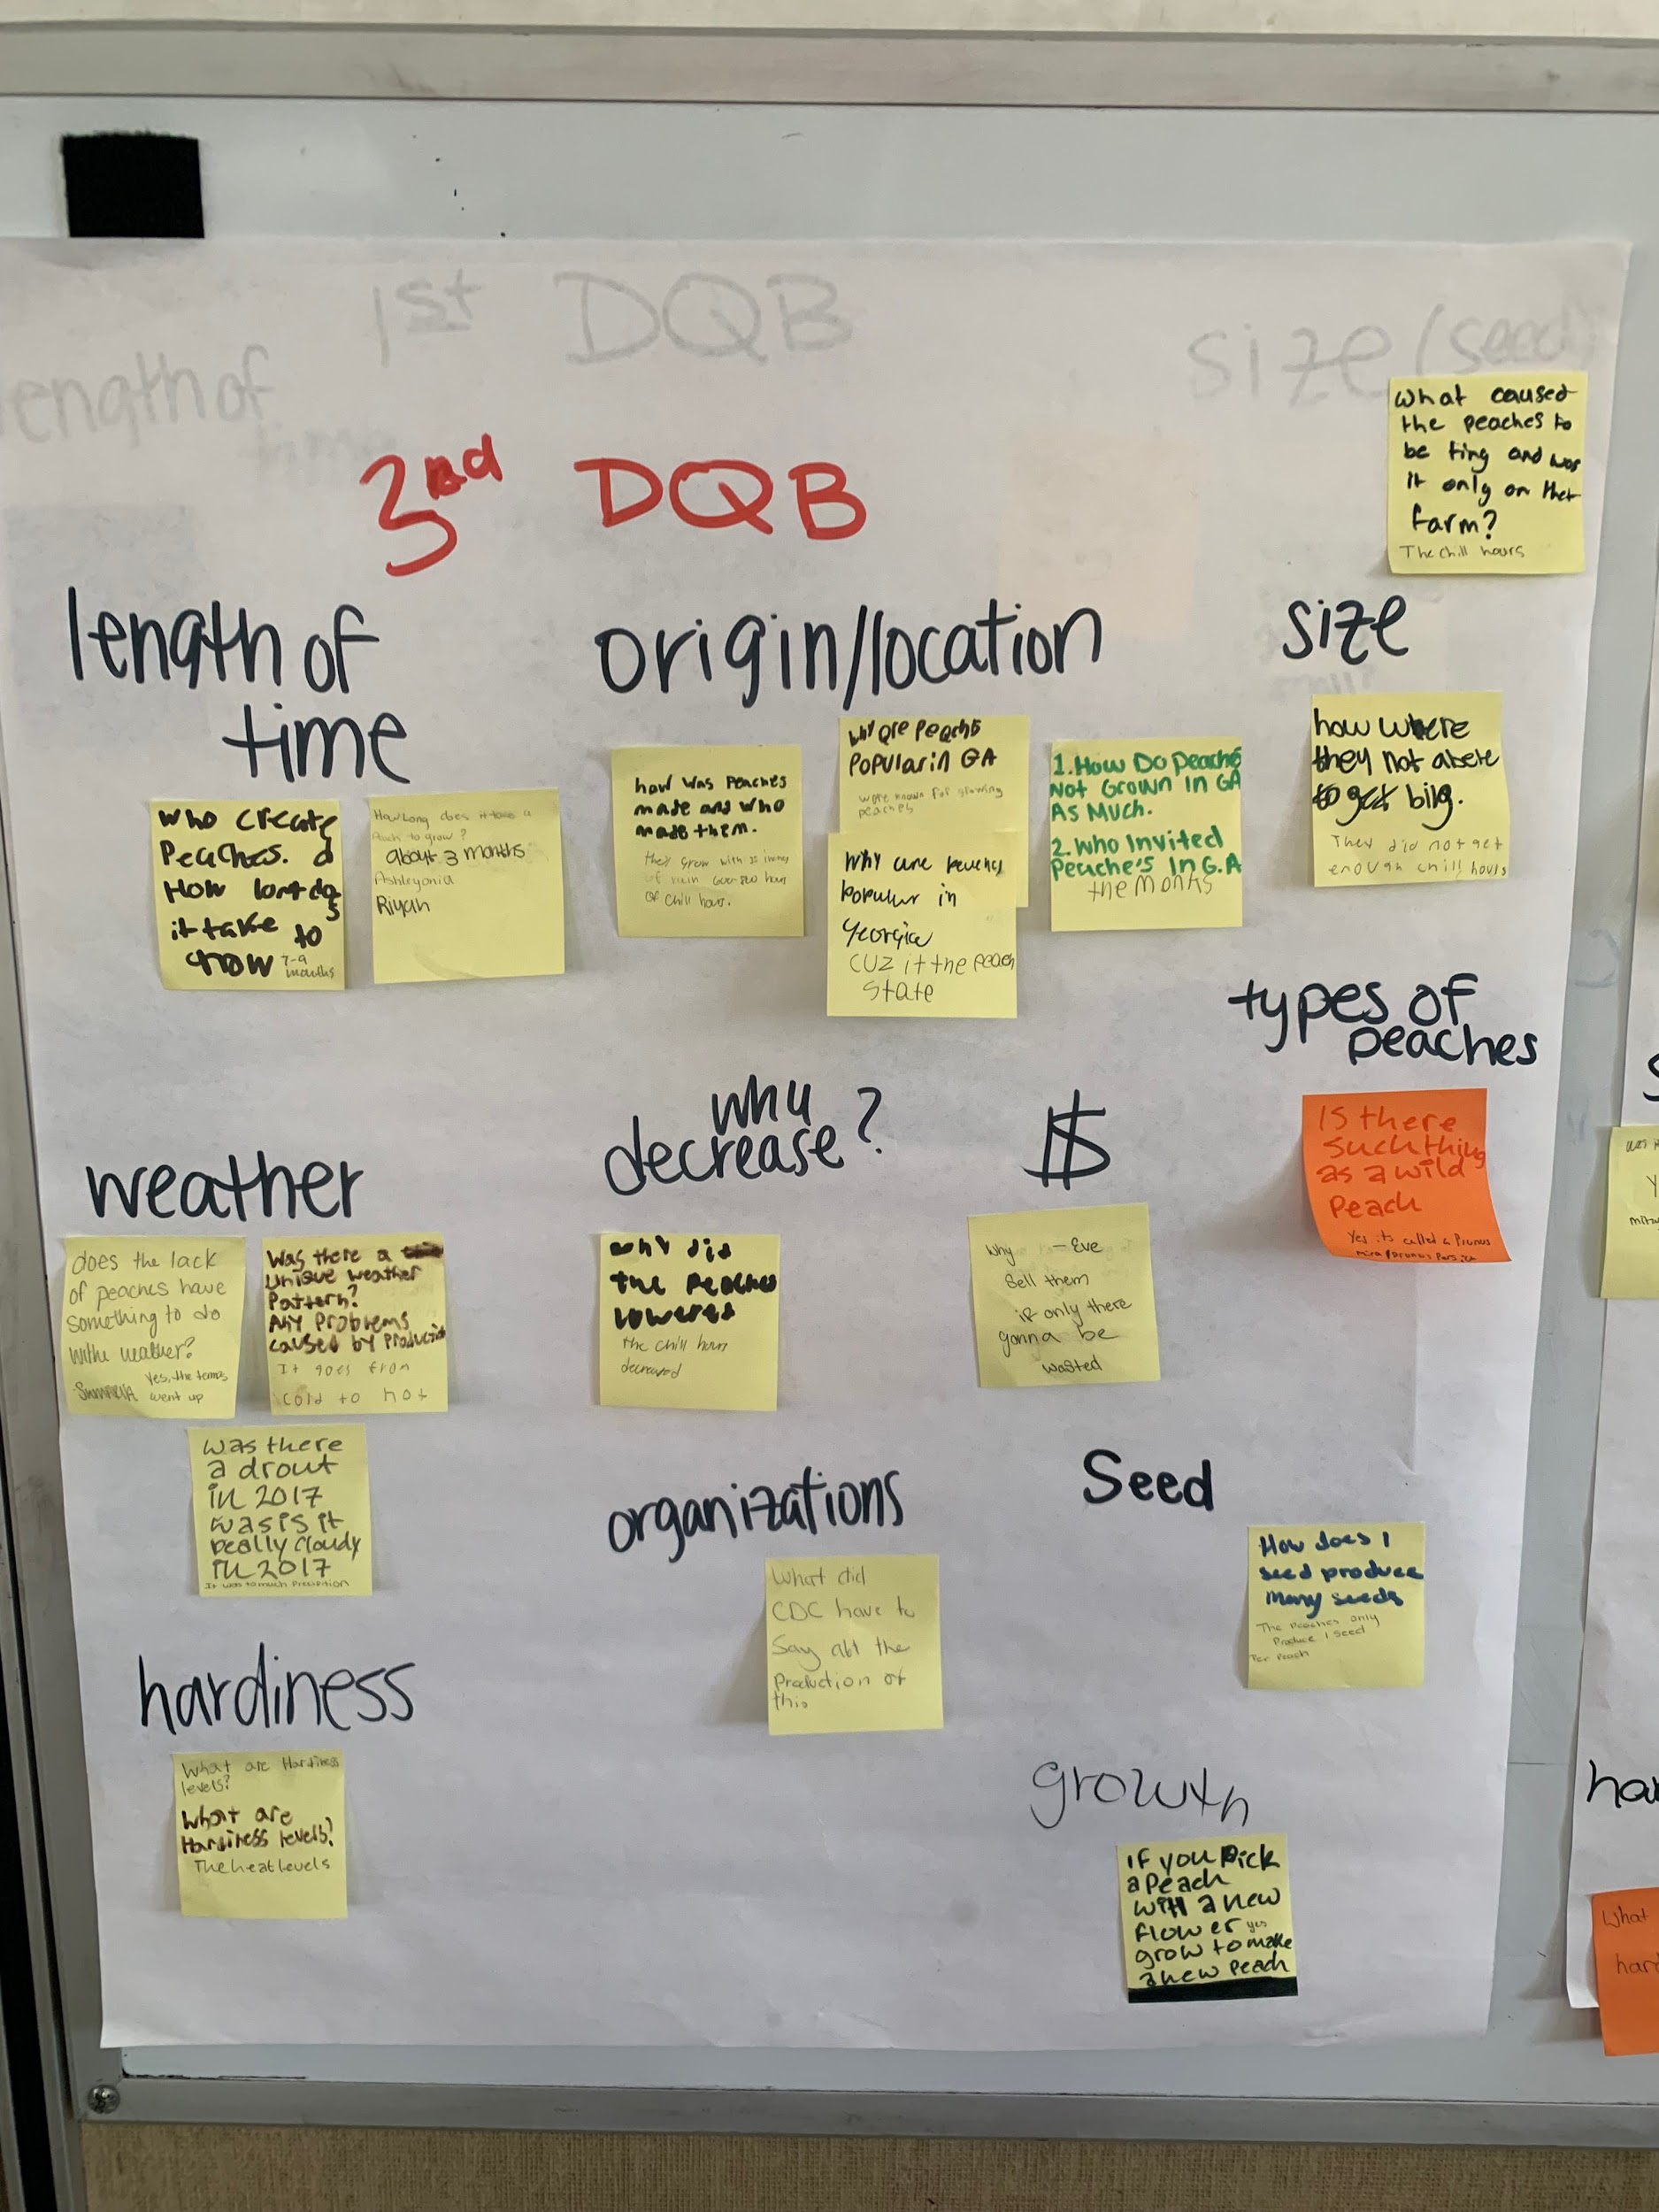 1st DQB
length of
time
size (seed)
3rd DQB
What caused
the peaches to
be tiny and was
it only on that
farm?
The chill hours
length of
time
Who create
Peaches. &
How long do
it take to
grow 7-9
months
How Long does it take a
peach to grow?
about 3 months
Ashleyonia
Riyah
origin/location
how was Peaches
made and who
made them.
they grow with 32 inches
of rain 600-800 hours
of chill hours.
why are Peaches
Popular in GA
were known for growing
peaches
Why are peaches
popular in
Georgia
CUZ it the peach
State
1. How Do peaches
Not Grown In GA
As Much.
2. Who Invited
Peache's In G.A
the Monks
size
how where
they not abete
to get big.
They did not get
enough chill hours
types of
peaches
Is there
such thing
as a wild
Peach
Yes its called a Prunus
mira/prunus Persica
weather
does the lack
of peaches have
something to do
withe weather?
Yes, the temps
went up
Was there a
Unique weather
Pattern?
Any Problems
caused by Production
It goes from
cold to hot
was there
a drout
in 2017
was is it
really cloudy
in 2017
It was to much Precipition
why
decrease?
why did
the Peaches
lowered
the chill hours
decreased
$
Why - Eve
Sell them
if only there
gonna be
wasted
organizations
What did
CDC have to
Say abt the
Production of
this
Seed
How does 1
seed produce
many seeds
The Peaches only
Produce 1 seed
Per Peach
hardiness
What are Hardiness
levels?
What are
Hardiness levels?
The heat levels
growth
if you Pick
a Peach
will a new
flower yes
grow to make
a new peach
S
was
Y
har
What
hard